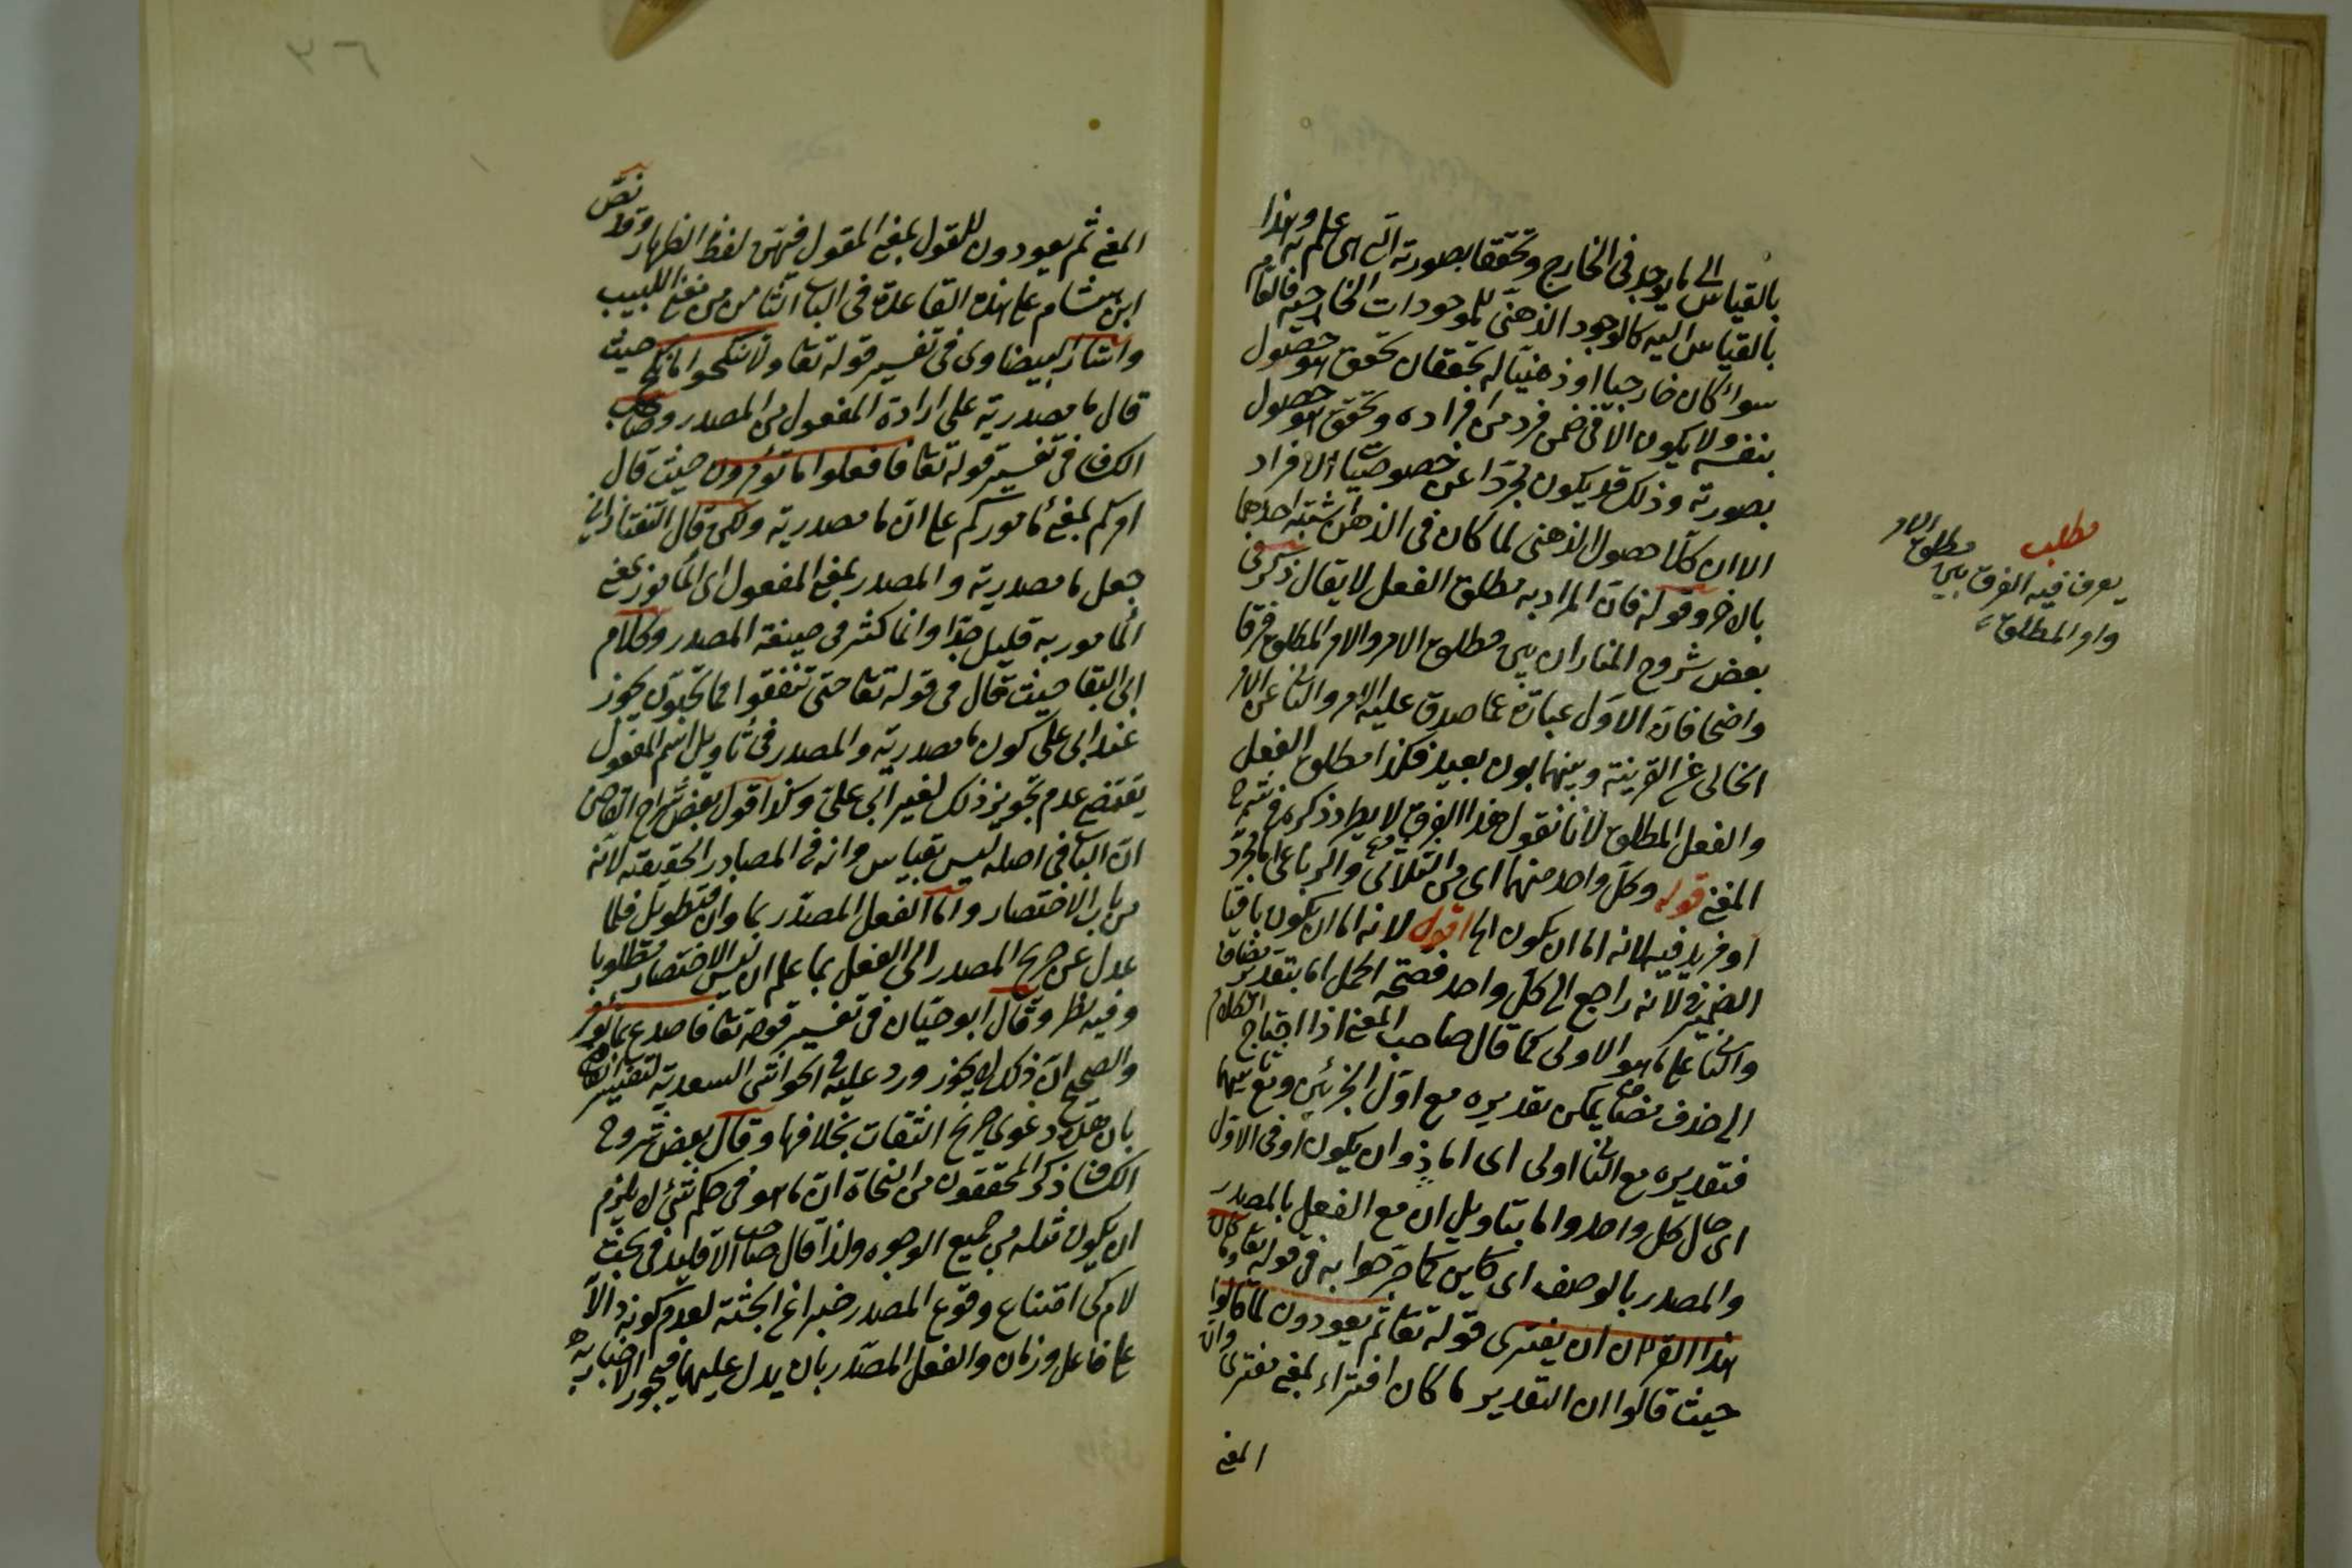 بالقياس الى ما يوجد فى الخارج وتحققا بصورته التى هى علم به وهذا
بالقياس اليه كالوجود الذهنى للموجودات الخارجية فالعام
سواء كان خارجيا او ذهنيا له تحققان تحقق هو حصول
بنفسه ولا يكون الا فى ضمن فرد من افراده وتحقق هو حصول
بصورته وذلك قد يكون مجردا عن خصوصيات الافراد
الا ان كلا حصول الذهنى لما كان فى الذهن اشتبه احدهما
بالاخر وقوله فان المراد به مطلق الفعل لا يقال ذكر فى
بعض شروح المنار ان بين مطلق الامر والامر المطلق فرقا
واضحا فان الاول عبارة عما صدق عليه الامر والثانى عن الامر
الخالى عن القرينة وبينهما بون بعيد فكذا مطلق الفعل
والفعل المطلق لانا نقول هذا الفرق لا يطرد ذكره فى شرح
المغنى قوله وكل واحد منهما اى من الثلاثى والرباعى اما مجرد
او مزيد فيه لانه اما ان يكون الخ اقول لانه اما ان يكون باقيا
الضمير فى لانه راجع الى كل واحد فصحة الحمل اما بتقدير مضاف
والثانى على ما هو الاولى كما قال صاحب المغنى اذا احتاج الكلام
الى حذف مضاف يمكن تقديره مع اول الجزئين ومع ثانيهما
فتقديره مع الثانى اولى اى اما ذو ان يكون او فى الاول
اى حال كل واحد واما بتاويل ان مع الفعل بالمصدر
والمصدر بالوصف اى كاين كما صرحوا به فى قوله تعا وما كان
هذا القرآن ان يفترى قوله تعا ثم يعودون لما قالوا
حيث قالوا ان التقدير ما كان افتراء بمعنى مفترى وان
المغنى
مطلب
يعرف فيه الفرق بين مطلق الامر
وامر المطلق
المغنى ثم يعودون للقول بمعنى المقول فيهن لفظ الظهار وقد نص
ابن هشام على هذه القاعدة فى الباب الثامن من مغنى اللبيب
واشار البيضاوى فى تفسير قوله تعا ولا تنكحوا ما نكح حيث
قال ما مصدرية على ارادة المفعول من المصدر وصاحب
الكشاف فى تفسير قوله تعا فافعلوا ما تؤمرون حيث قال
امركم بمعنى ماموركم على ان ما مصدرية ولكن قال التفتازانى
جعل ما مصدرية والمصدر بمعنى المفعول اى المأمور بمعنى
المأمور به قليل جدا وانما كثر فى صيغة المصدر وكلام
ابى البقا حيث قال فى قوله تعا حتى تنفقوا مما تحبون يجوز
عند ابى على كون ما مصدرية والمصدر فى تأويل اسم المفعول
يقتضى عدم تجويز ذلك لغير ابى على وكذا قول بعض شراح القاضى
ان الباب فى اصله ليس بقياس وانه فى المصادر الحقيقة لانه
من باب الاختصار واما الفعل المصدر بما وان فتطويل فلما
عدل عن صريح المصدر الى الفعل بما علم ان ليس الاختصار مطلوبا
وفيه نظر وقال ابو حيان فى تفسير قوله تعا فاصدع بما تؤمر
والصحيح ان ذلك لا يجوز ورد عليه فى الحواشى السعدية لتفسير القاضى
بان هذه دعوى صرح الثقات بخلافها وقال بعض شروح
الكشاف ذكر المحققون من النحاة ان ما هو فى حكم شئ لا يلزم
ان يكون مثله من جميع الوجوه ولذا قال صاحب الاقليد فى بحث
لام كى امتناع وقوع المصدر خبرا عن الجثة لعدم كونه دالا
على فاعل وزمان والفعل المصدر بان يدل عليهما فيجوز الاخبار به